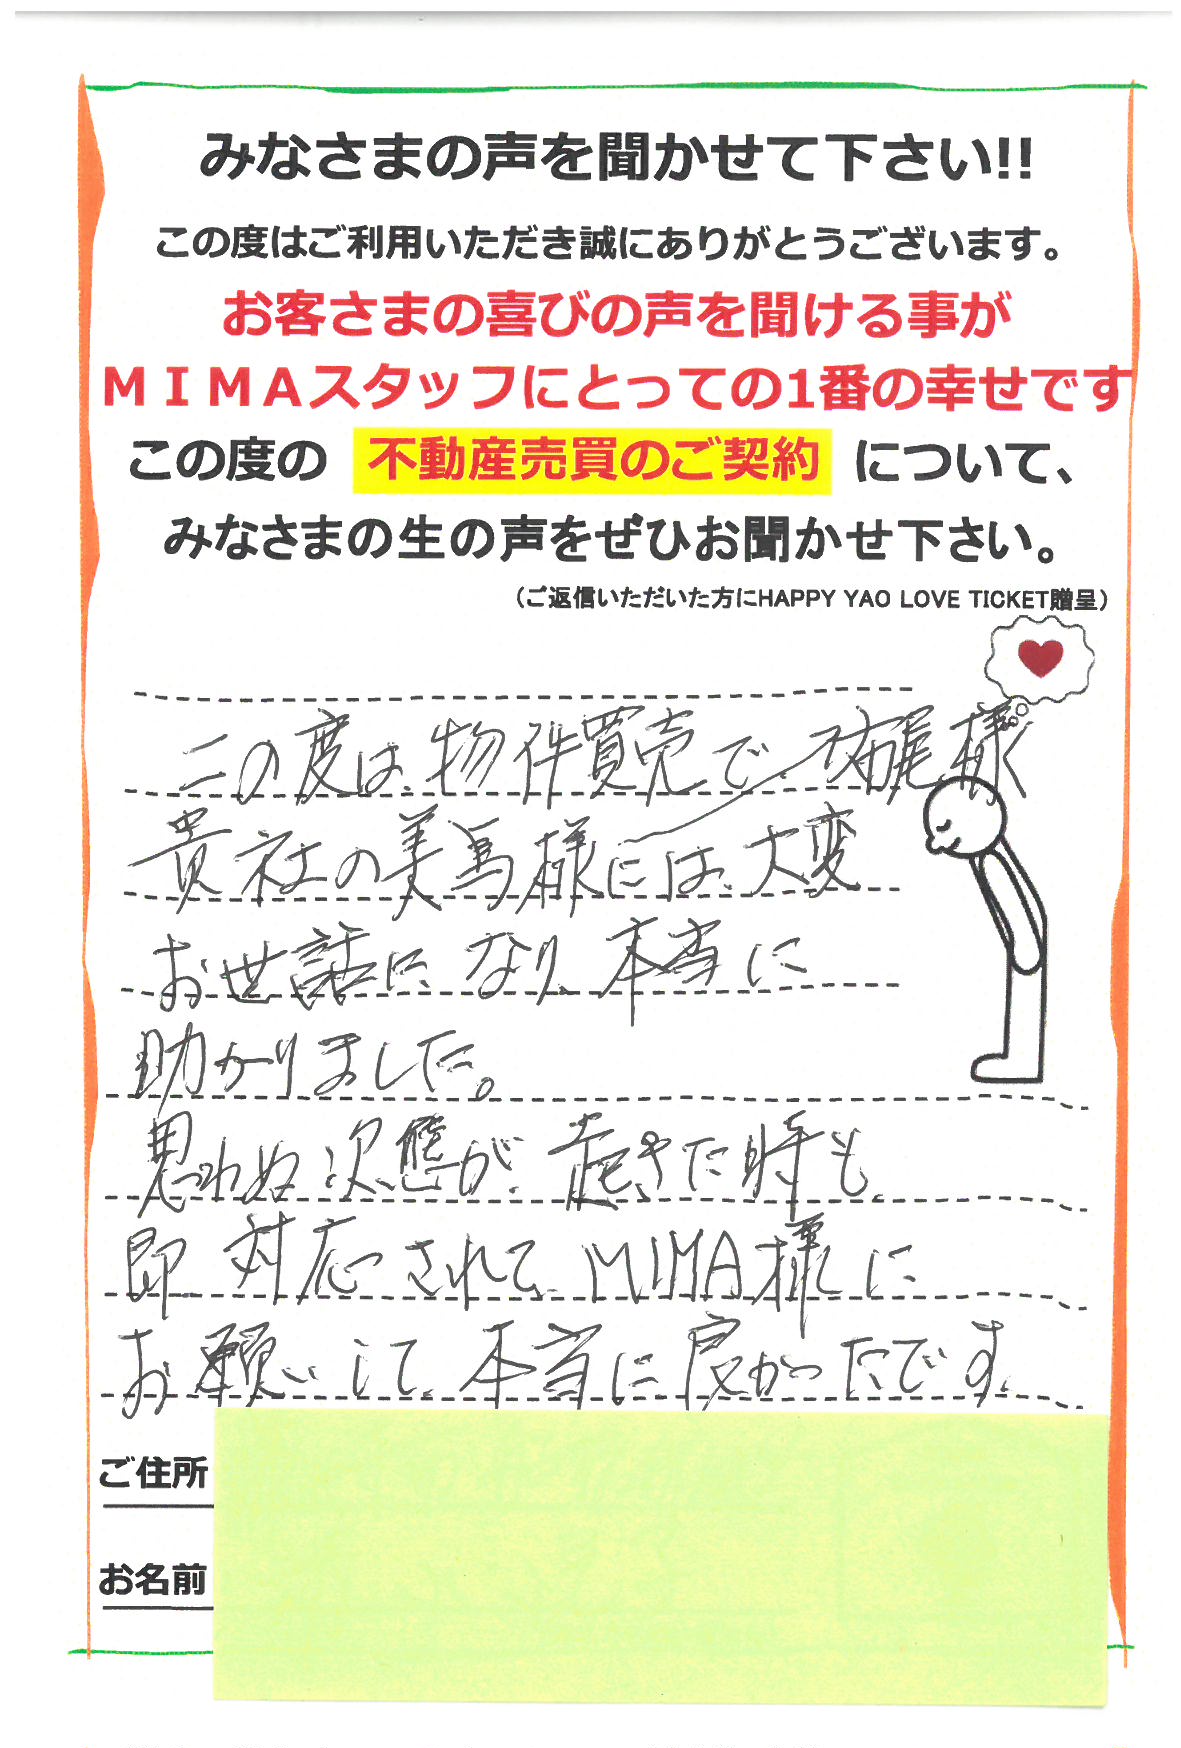 みなさまの声を聞かせて下さい!!
この度はご利用いただき誠にありがとうございます。
お客さまの喜びの声を聞ける事が
ＭＩＭＡスタッフにとっての1番の幸せです
この度の 不動産売買のご契約 について、
みなさまの生の声をぜひお聞かせ下さい。
（ご返信いただいた方にHAPPY YAO LOVE TICKET贈呈）
この度は、物件買売で、尾様
貴社の美馬様には、大変
お世話になり、本当に
助かりました。
思わぬ次態が、起きた時も
即対応されて、MIMA様に
お願いして、本当に良かったです。
ご住所
お名前